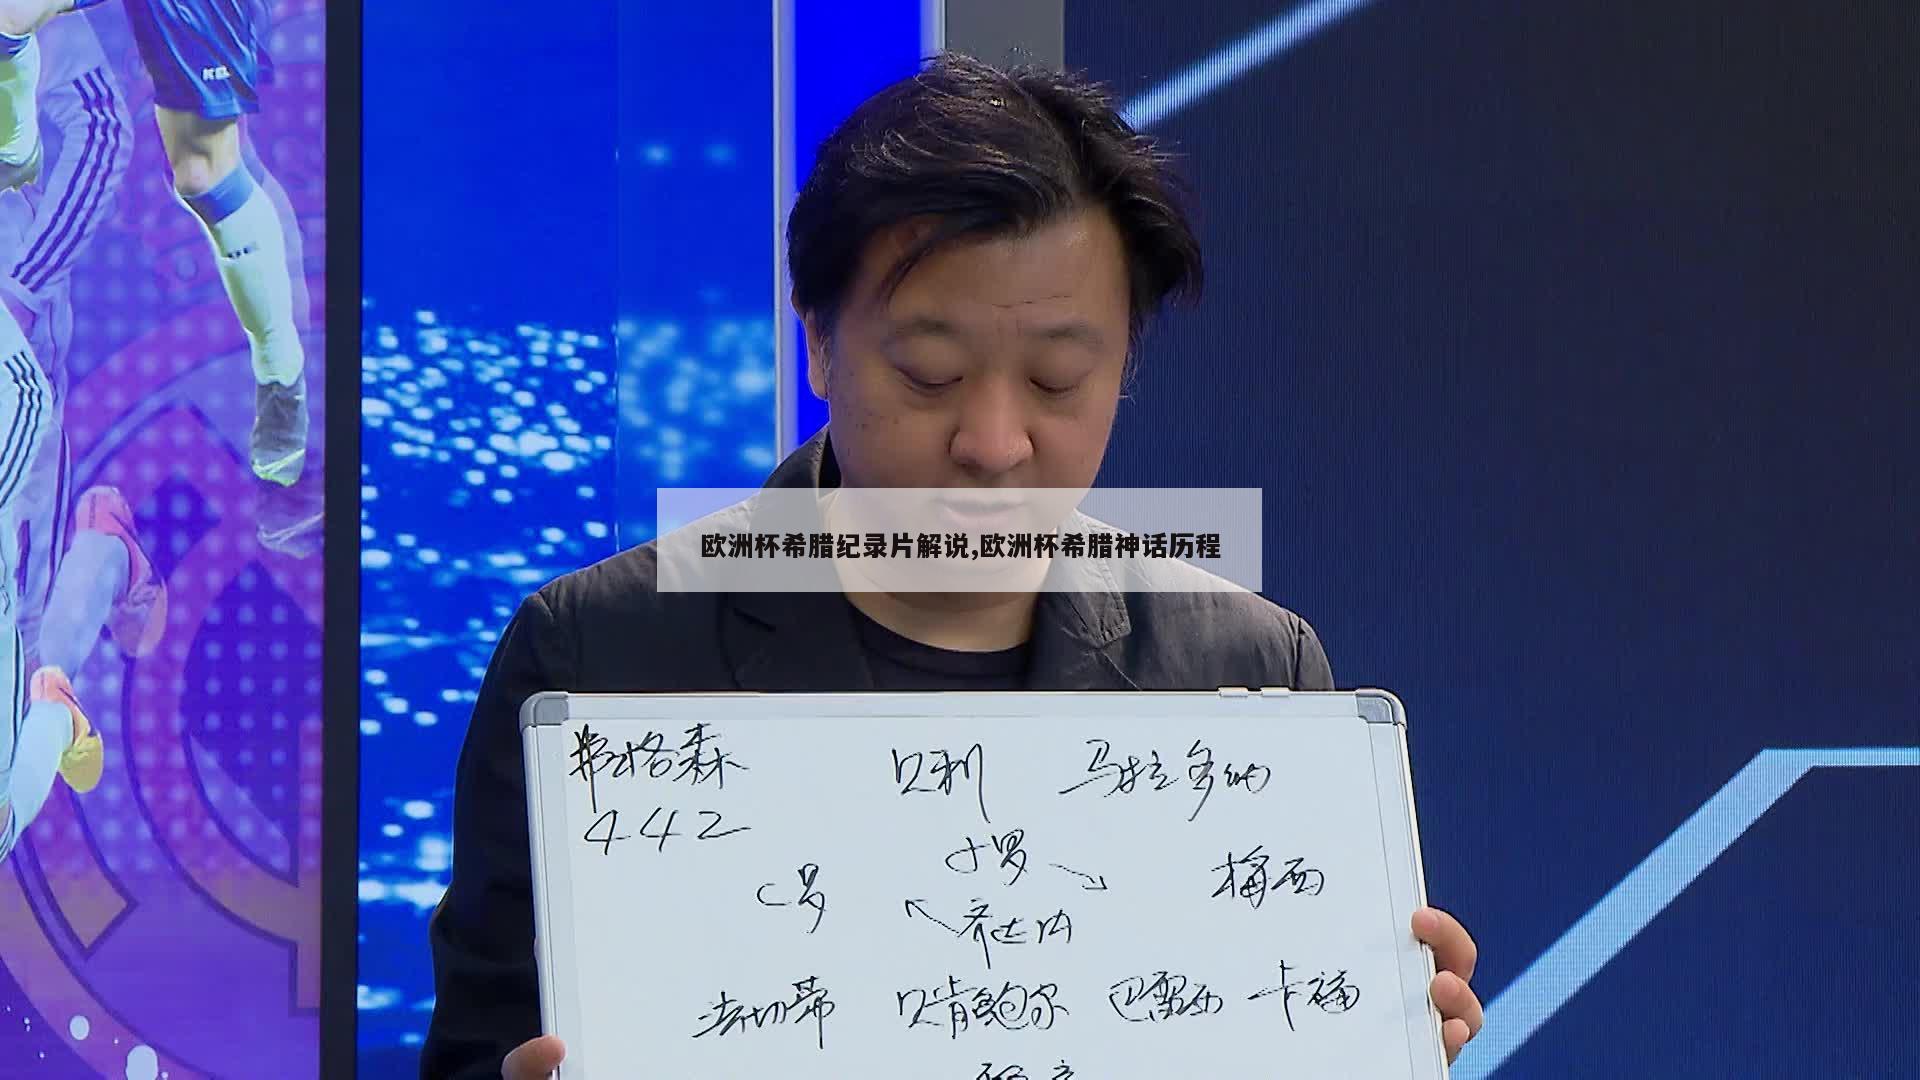 欧洲杯希腊纪录片解说,欧洲杯希腊神话历程
弗格森 贝利 马拉多纳
442
小罗
C罗 梅西
齐达内
法切蒂 贝肯鲍尔 巴雷西 卡福